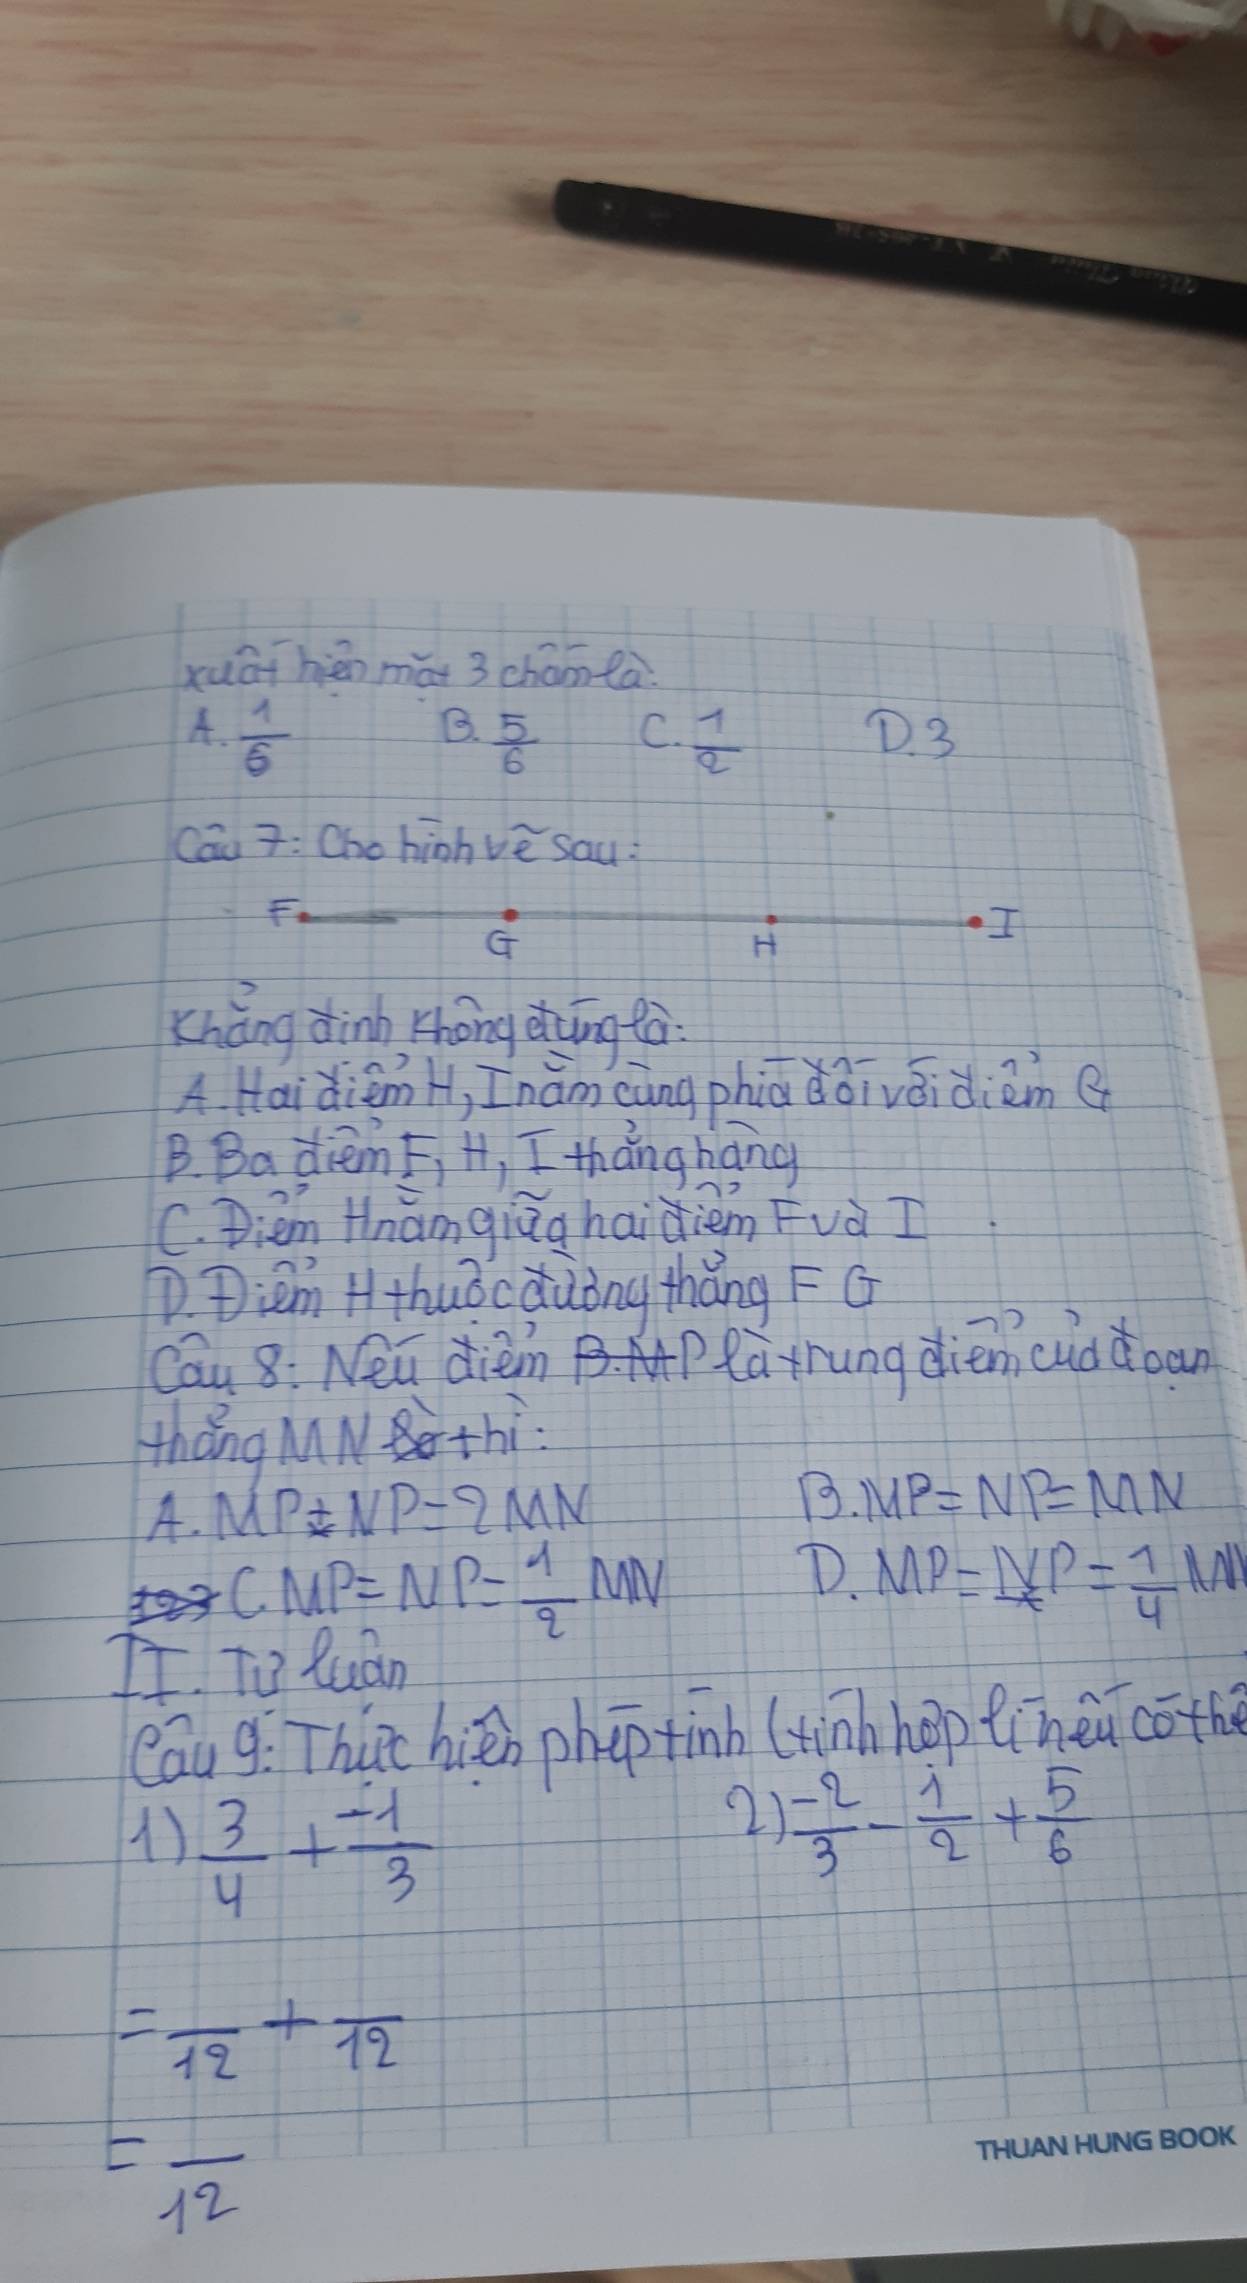 xuất hiện mặt 3 chấm là:
A. 1/6 B. 5/6 C. 1/2 D. 3
Câu 7: Cho hình vẽ sau:
F G H I
Khẳng định không đúng là:
A. Hai điểm H, I nằm cùng phía đối với điểm G
B. Ba điểm F, H, I thẳng hàng
C. Điểm H nằm giữa hai điểm F và I
D. Điểm H thuộc đường thẳng F G
Câu 8: Nếu điểm P là trung điểm của đoạn
thẳng MN thì:
A. MP = NP = 2 MN B. MP = NP = MN
C. MP = NP = 1/2 MN D. MP = NP = 1/4 MN
II. Tự luận
Câu 9: Thực hiện phép tính (tính hợp lí nếu có thể
1) 3/4 + -1/3 2) -2/3 - 1/2 + 5/6
= /12 + /12
= /12
THUAN HUNG BOOK